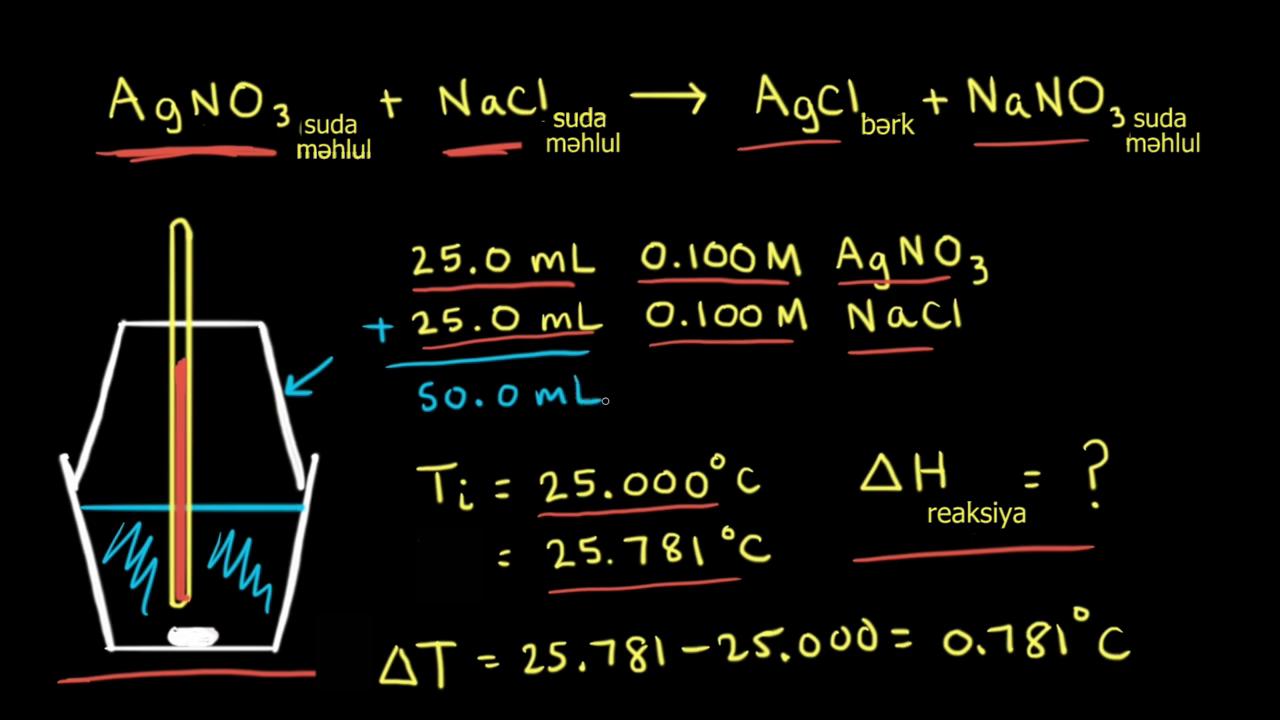 AgNO₃ suda məhlul + NaCl suda məhlul → AgCl bərk + NaNO₃ suda məhlul
25.0 mL 0.100 M AgNO₃
+ 25.0 mL 0.100 M NaCl
50.0 mL
Ti = 25.000°C
ΔH reaksiya = ?
= 25.781°C
ΔT = 25.781 – 25.000 = 0.781°C